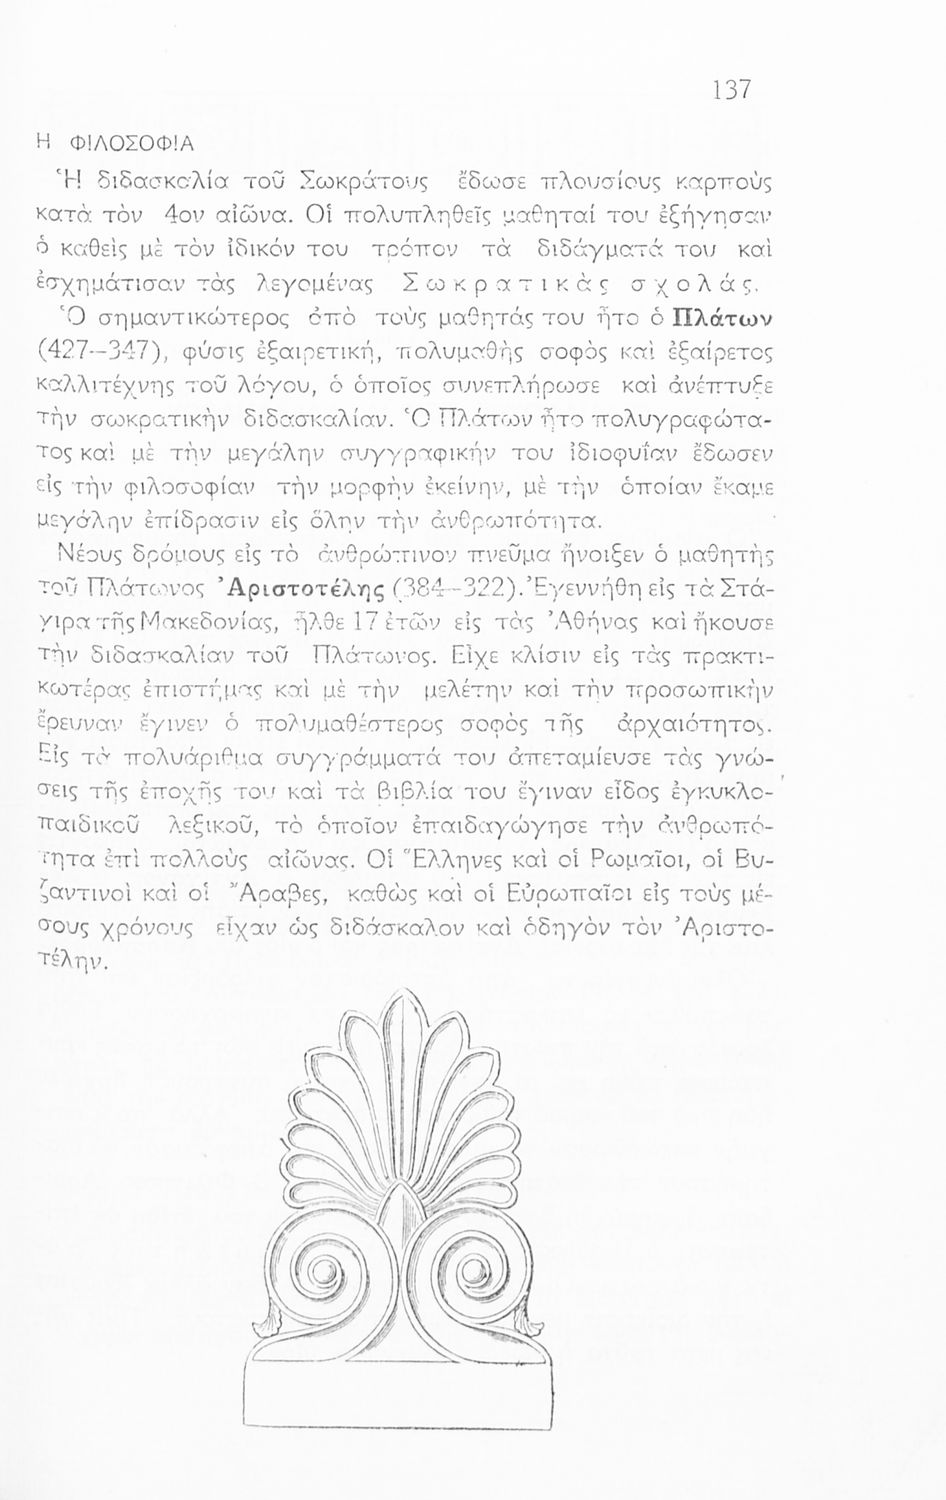 137
Η ΦΙΛΟΣΟΦΙΑ
Ἡ διδασκαλία τοῦ Σωκράτους ἔδωσε πλουσίους καρποὺς
κατὰ τὸν 4ον αἰῶνα. Οἱ πολυπληθεῖς μαθηταί του ἐξήγησαν
ὁ καθεὶς μὲ τὸν ἰδικόν του τρόπον τὰ διδάγματά του καὶ
ἐσχημάτισαν τὰς λεγομένας Σωκρατικὰς σχολάς.
Ὁ σημαντικώτερος ἀπὸ τοὺς μαθητάς του ἦτο ὁ Πλάτων
(427—347), φύσις ἐξαιρετική, πολυμαθὴς σοφὸς καὶ ἐξαίρετος
καλλιτέχνης τοῦ λόγου, ὁ ὁποῖος συνεπλήρωσε καὶ ἀνέπτυξε
τὴν σωκρατικὴν διδασκαλίαν. Ὁ Πλάτων ἦτο πολυγραφώτα-
τος καὶ μὲ τὴν μεγάλην συγγραφικήν του ἰδιοφυΐαν ἔδωσεν
εἰς τὴν φιλοσοφίαν τὴν μορφὴν ἐκείνην, μὲ τὴν ὁποίαν ἔκαμε
μεγάλην ἐπίδρασιν εἰς ὅλην τὴν ἀνθρωπότητα.
Νέους δρόμους εἰς τὸ ἀνθρώπινον πνεῦμα ἤνοιξεν ὁ μαθητὴς
τοῦ Πλάτωνος Ἀριστοτέλης (384—322). Ἐγεννήθη εἰς τὰ Στά-
γιρα τῆς Μακεδονίας, ἦλθε 17 ἐτῶν εἰς τὰς Ἀθήνας καὶ ἤκουσε
τὴν διδασκαλίαν τοῦ Πλάτωνος. Εἶχε κλίσιν εἰς τὰς πρακτι-
κωτέρας ἐπιστήμας καὶ μὲ τὴν μελέτην καὶ τὴν προσωπικὴν
ἔρευναν ἔγινεν ὁ πολυμαθέστερος σοφὸς τῆς ἀρχαιότητος.
Εἰς τὰ πολυάριθμα συγγράμματά του ἀπεταμίευσε τὰς γνώ-
σεις τῆς ἐποχῆς του καὶ τὰ βιβλία του ἔγιναν εἶδος ἐγκυκλο-
παιδικοῦ λεξικοῦ, τὸ ὁποῖον ἐπαιδαγώγησε τὴν ἀνθρωπό-
τητα ἐπὶ πολλοὺς αἰῶνας. Οἱ Ἕλληνες καὶ οἱ Ρωμαῖοι, οἱ Βυ-
ζαντινοὶ καὶ οἱ Ἄραβες, καθὼς καὶ οἱ Εὐρωπαῖοι εἰς τοὺς μέ-
σους χρόνους εἶχαν ὡς διδάσκαλον καὶ ὁδηγὸν τὸν Ἀριστο-
τέλην.